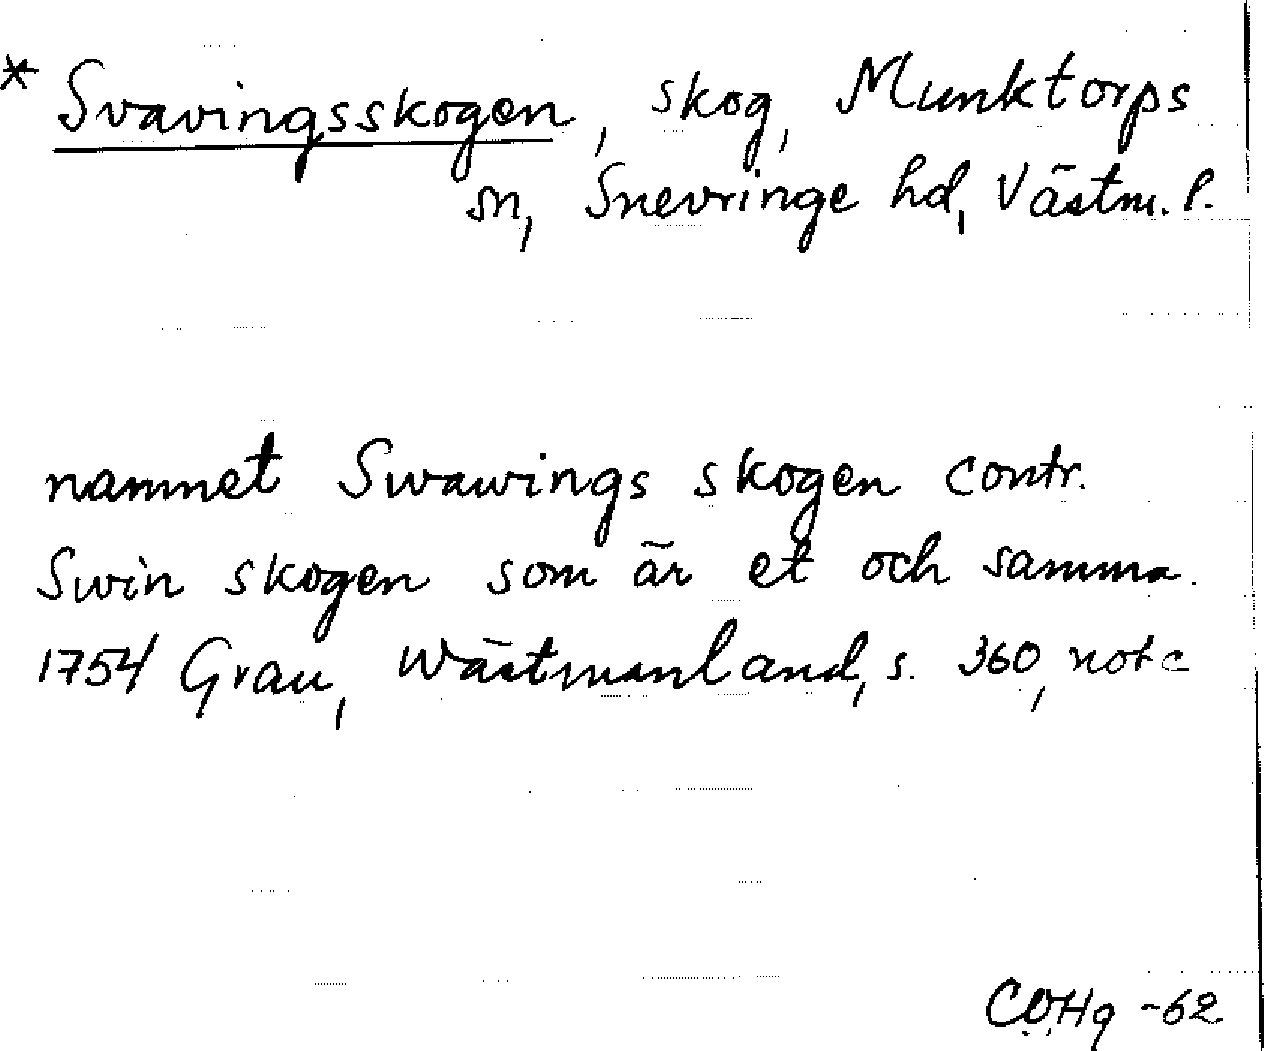 * Svavingsskogen, skog, Munktorps
sn, Snevringe hd, Västm. l.
namnet Swawings skogen contr.
Swin skogen som är et och samma.
1754 Grau, Wästmanland, s. 360, not c
COHg -62